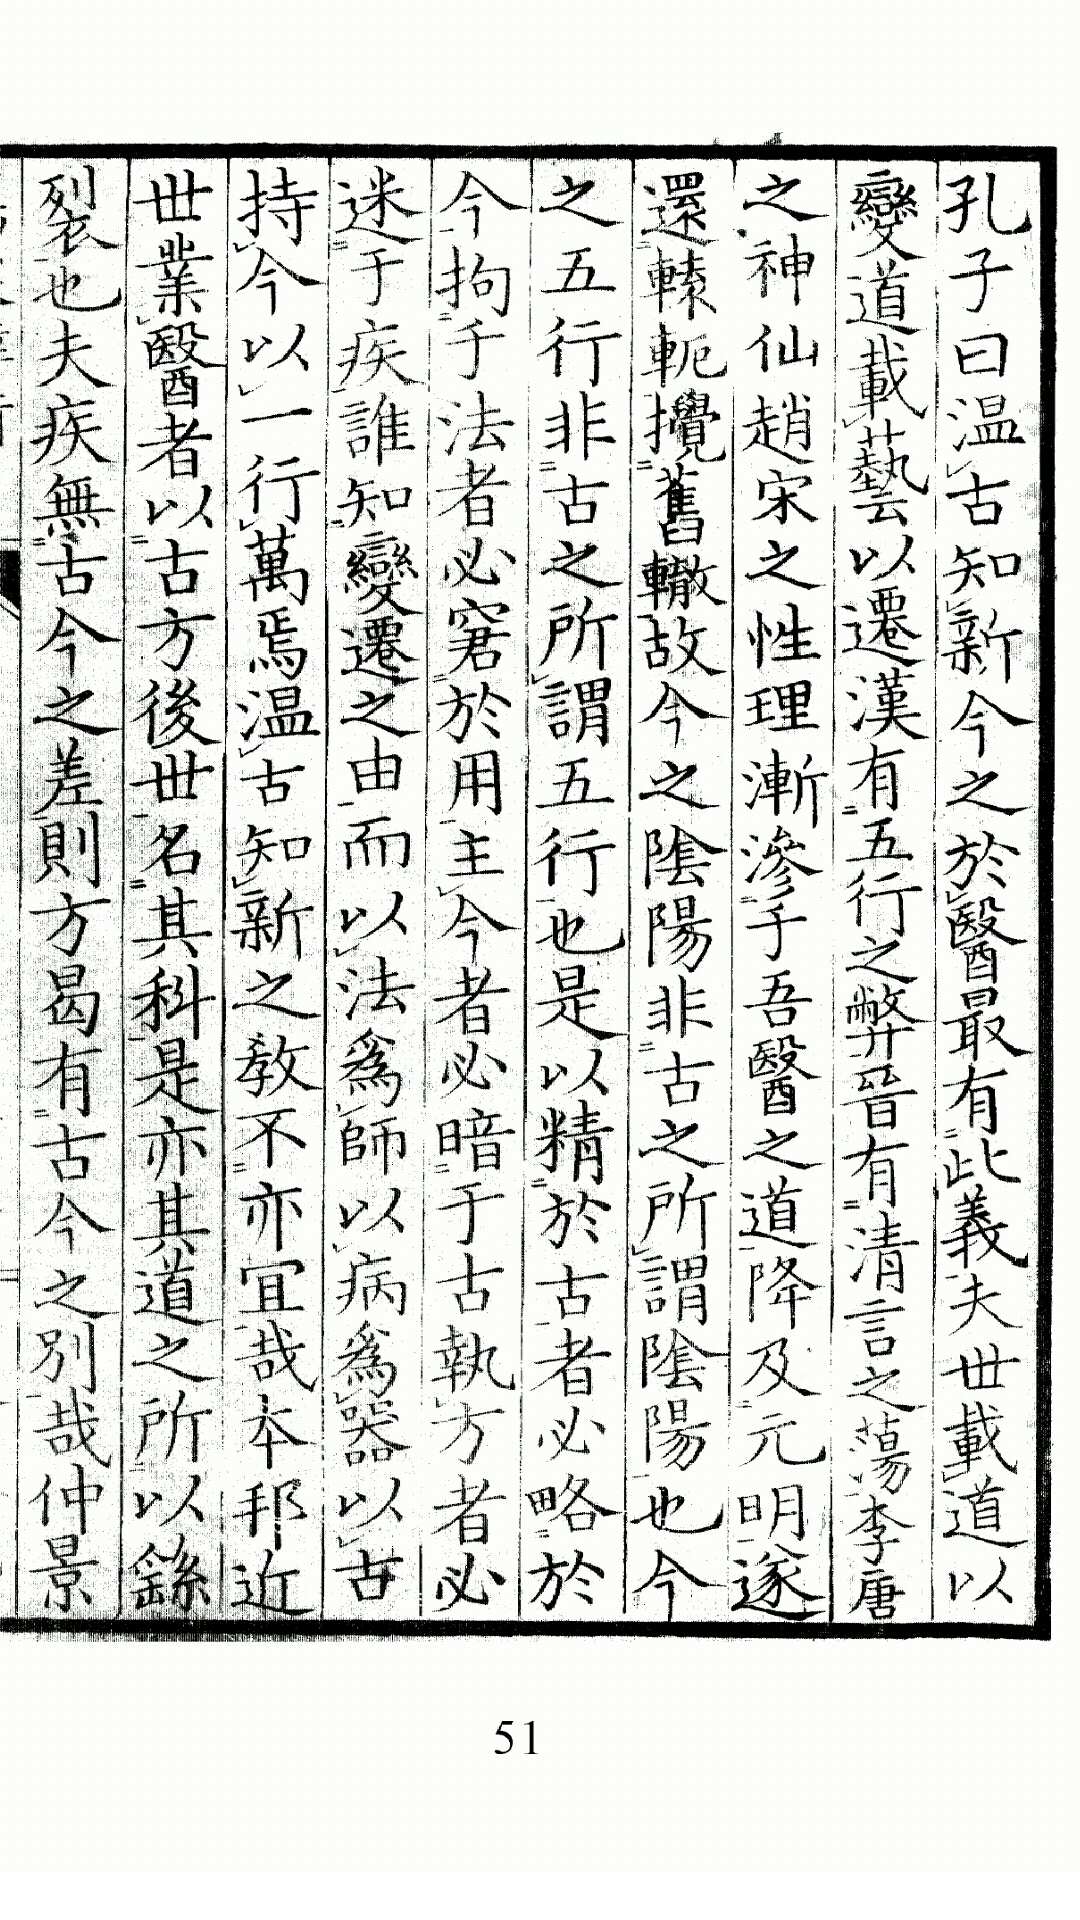 孔子曰温古知新今之於醫最有此義夫世載道以
變道載藝以遷漢有五行之弊晉有清言之蕩李唐
之神仙趙宋之性理漸滲于吾醫之道降及元明遂
還轅軛攪舊轍故今之陰陽非古之所謂陰陽也今
之五行非古之所謂五行也是以精於古者必略於
今拘于法者必窘於用主今者必暗于古執方者必
迷于疾誰知變遷之由而以法爲師以病爲器以古
持今以一行萬焉温古知新之敎不亦宜哉本邦近
世業醫者以古方後世名其科是亦其道之所以繇
裂也夫疾無古今之差則方曷有古今之別哉仲景
51